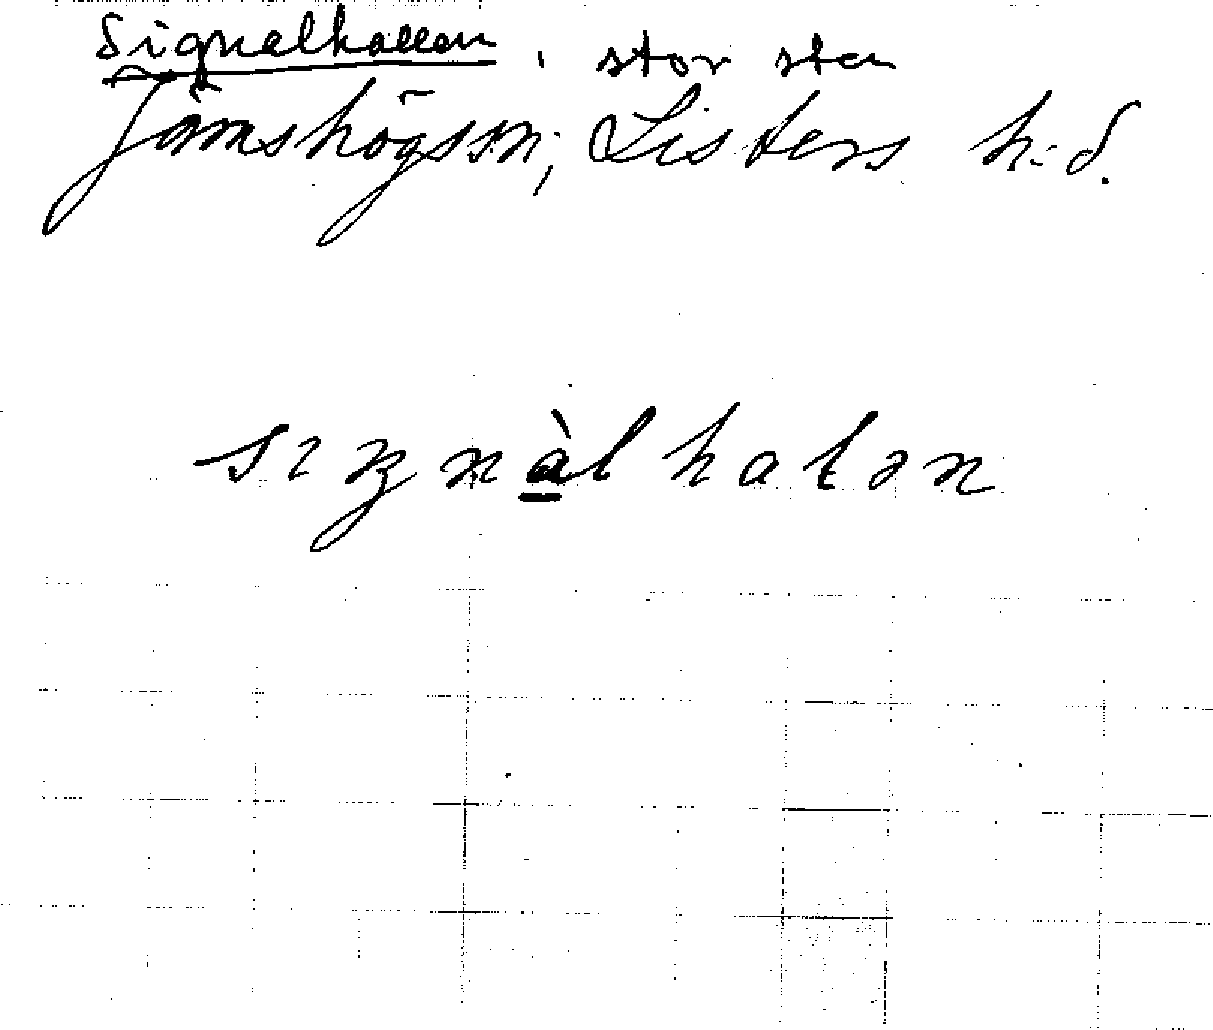 Signalhallen, stor sten
Jämshögssn, Listers h:d.
sıgnàlhalən